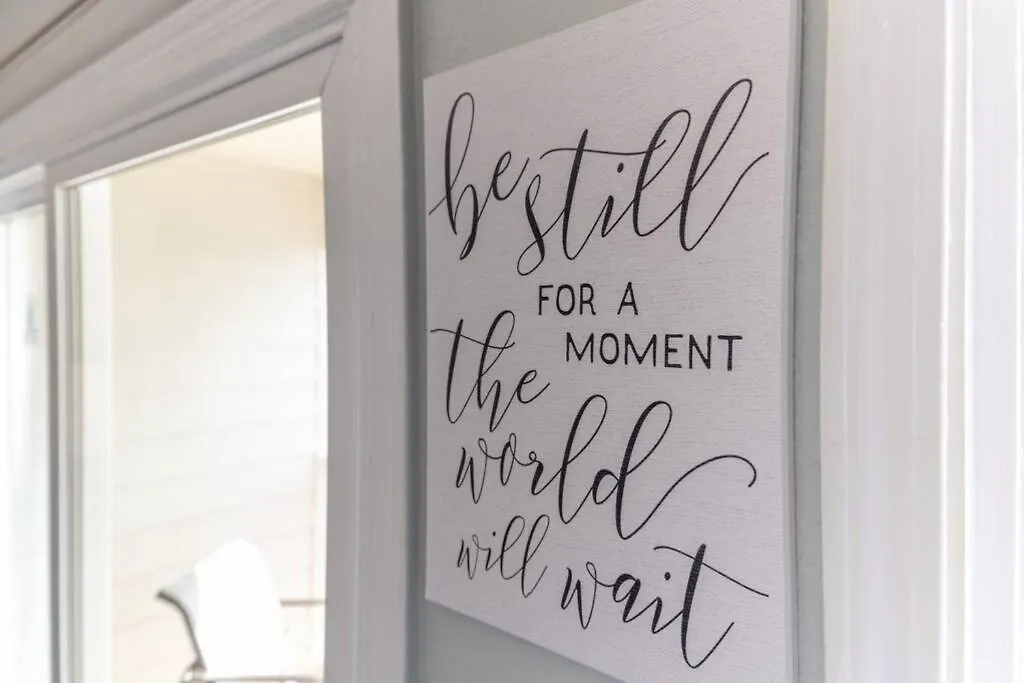 be still
FOR A
MOMENT
the
world
will wait